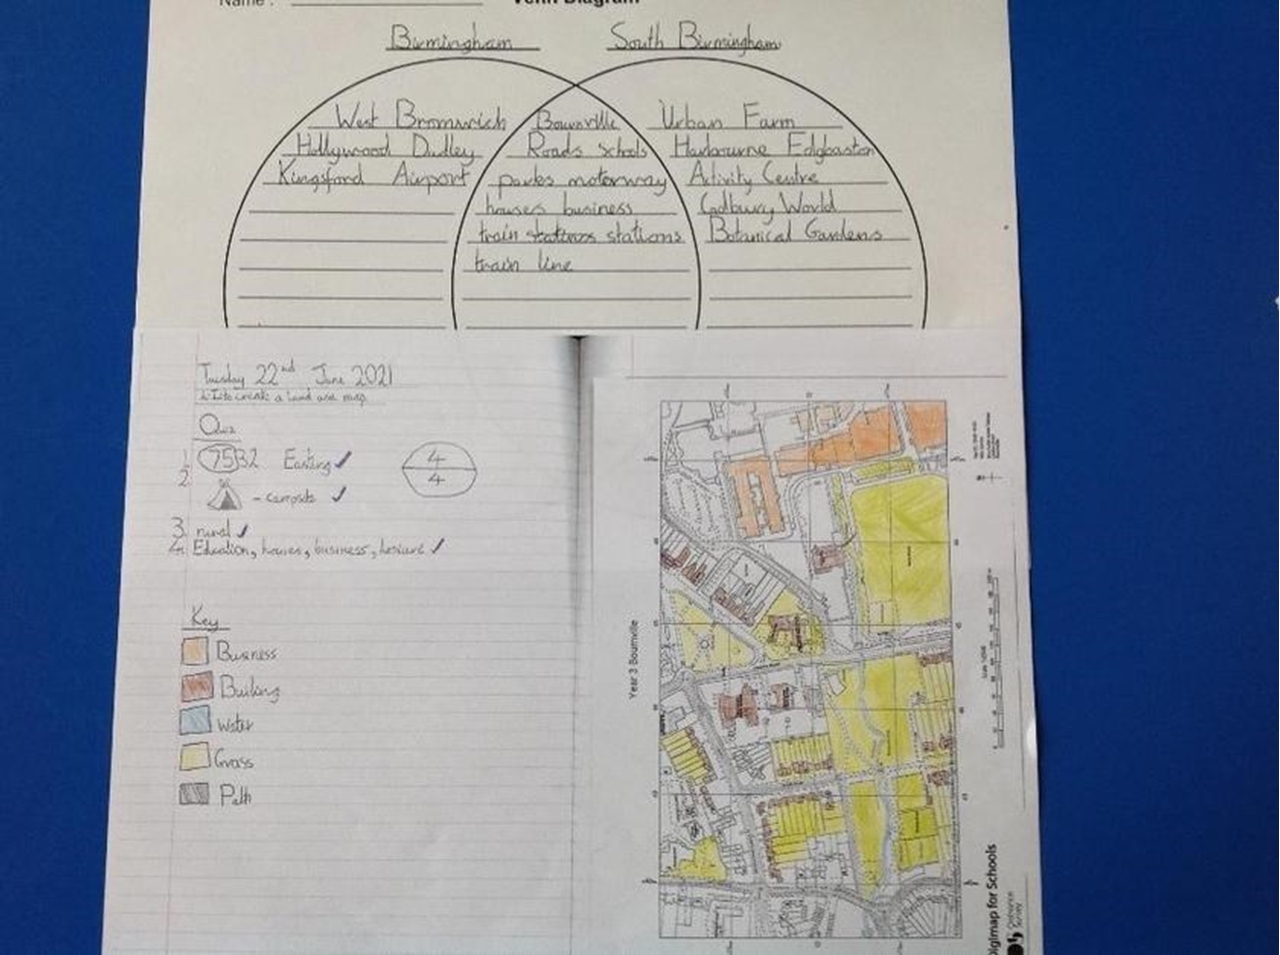 Name :
Venn Diagram
Birmingham
South Birmingham
West Bromwich
Hollywood Dudley
Kingsford Airport
Bournville
Roads schools
parks motorway
houses business
train stations
train line
Urban Farm
Harbourne Edgbaston
Activity Centre
Cadbury World
Botanical Gardens
Tuesday 22nd June 2021
create a land use map
Quiz
1. 7532 Easting
2. - campsite
3. rural
4. Education, houses, business,
4
4
Key
Business
Building
Water
Grass
Path
Year 3 Bournville
Digimap for Schools
Ordnance
Survey